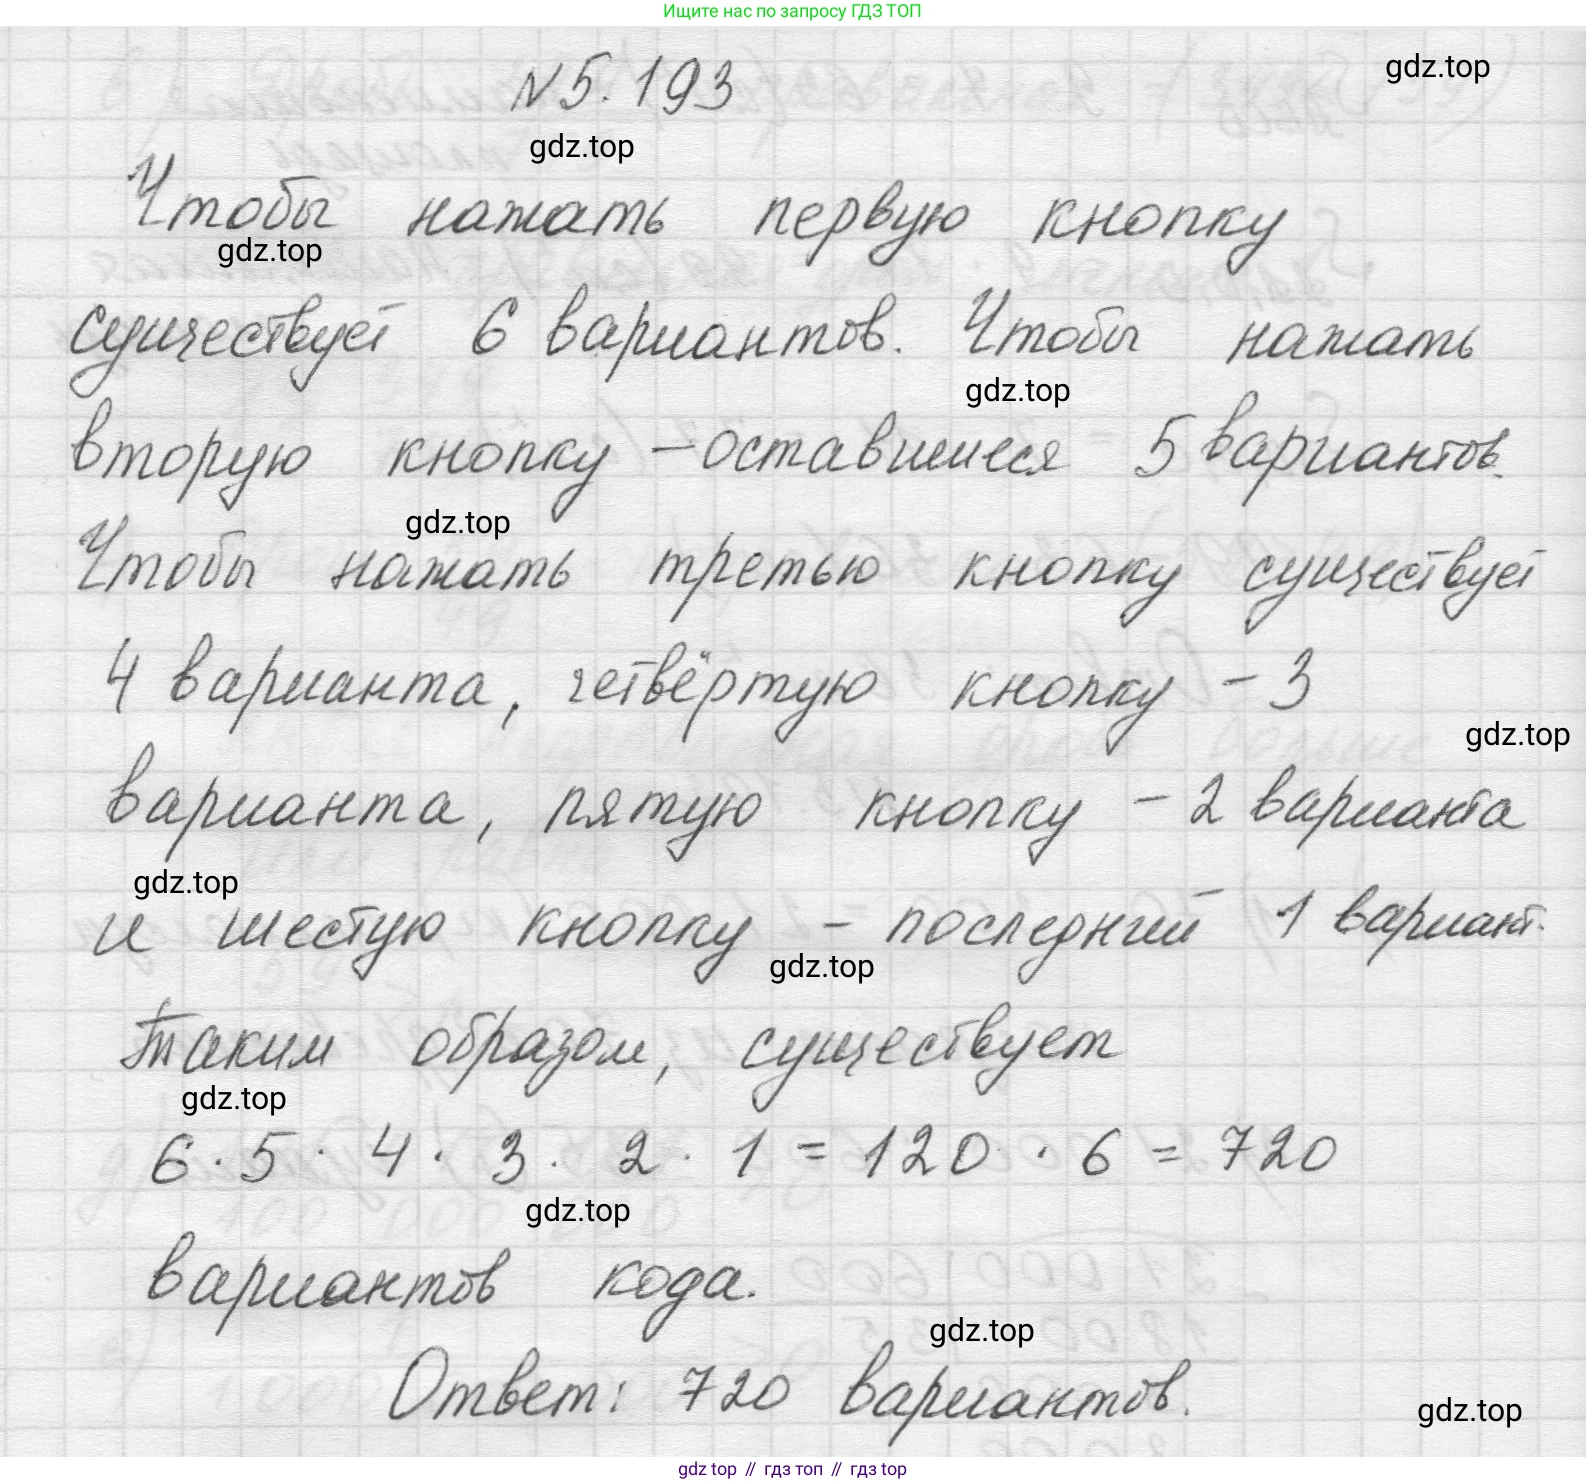 Ищите нас по запросу ГДЗ ТОП
gdz.top
N 5.193
gdz.top
Чтобы нажать первую кнопку
gdz.top
существует 6 вариантов. Чтобы нажать
gdz.top
вторую кнопку – оставшиеся 5 вариантов.
gdz.top
Чтобы нажать третью кнопку существует
4 варианта, четвёртую кнопку – 3
gdz.top
варианта, пятую кнопку – 2 варианта
gdz.top
и шестую кнопку – последний 1 вариант.
gdz.top
Таким образом, существует
gdz.top
6 · 5 · 4 · 3 · 2 · 1 = 120 · 6 = 720
gdz.top
вариантов кода.
gdz.top
Ответ: 720 вариантов.
gdz.top
gdz top // гдз топ // гдз top